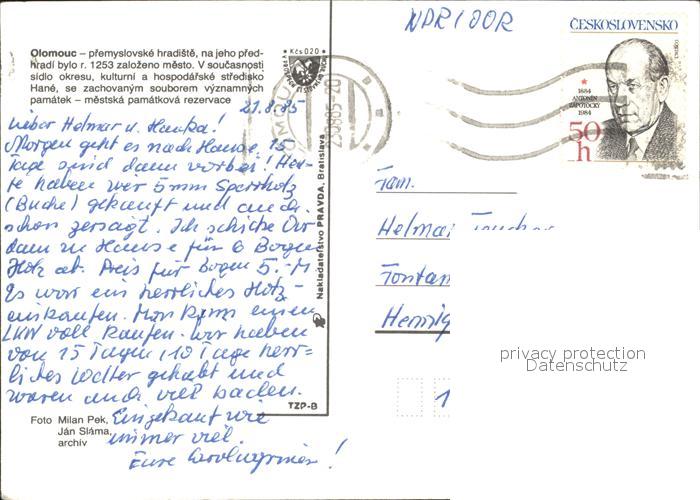 NDR / DDR
Olomouc – přemyslovské hradiště, na jeho před-
hradí bylo r. 1253 založeno město. V současnosti
sídlo okresu, kulturní a hospodářské středisko
Hané, se zachovaným souborem významných
památek – městská památková rezervace
Kčs 0,20
21.8.85
Lieber Helmar u. Hanka!
Morgen geht es nach Hause, 15
Tage sind dann vorbei! Heu-
te haben wir 5 mm Sperrholz
(Buche) gekauft und auch
schon zersägt. Ich schicke Dir
dann zu Hause für 6 Bogen
Holz ab. Preis für Bogen 5,- M
Es war ein herrliches Holz-
einkaufen. Man kann einen
LKW voll kaufen. Wir haben
von 15 Tagen, 10 Tage herr=
liches Wetter gehabt und
waren auch viel baden.
Eingekauft wie
immer viel.
Eure
Foto Milan Pek,
Ján Sláma,
archív
TZP-B
Nakladateľstvo PRAVDA, Bratislava
ČESKOSLOVENSKO
1884
ANTONÍN
ZÁPOTOCKÝ
1984
50
h
Fam.
Helmar
Fontan
Hennig
1
privacy protection
Datenschutz